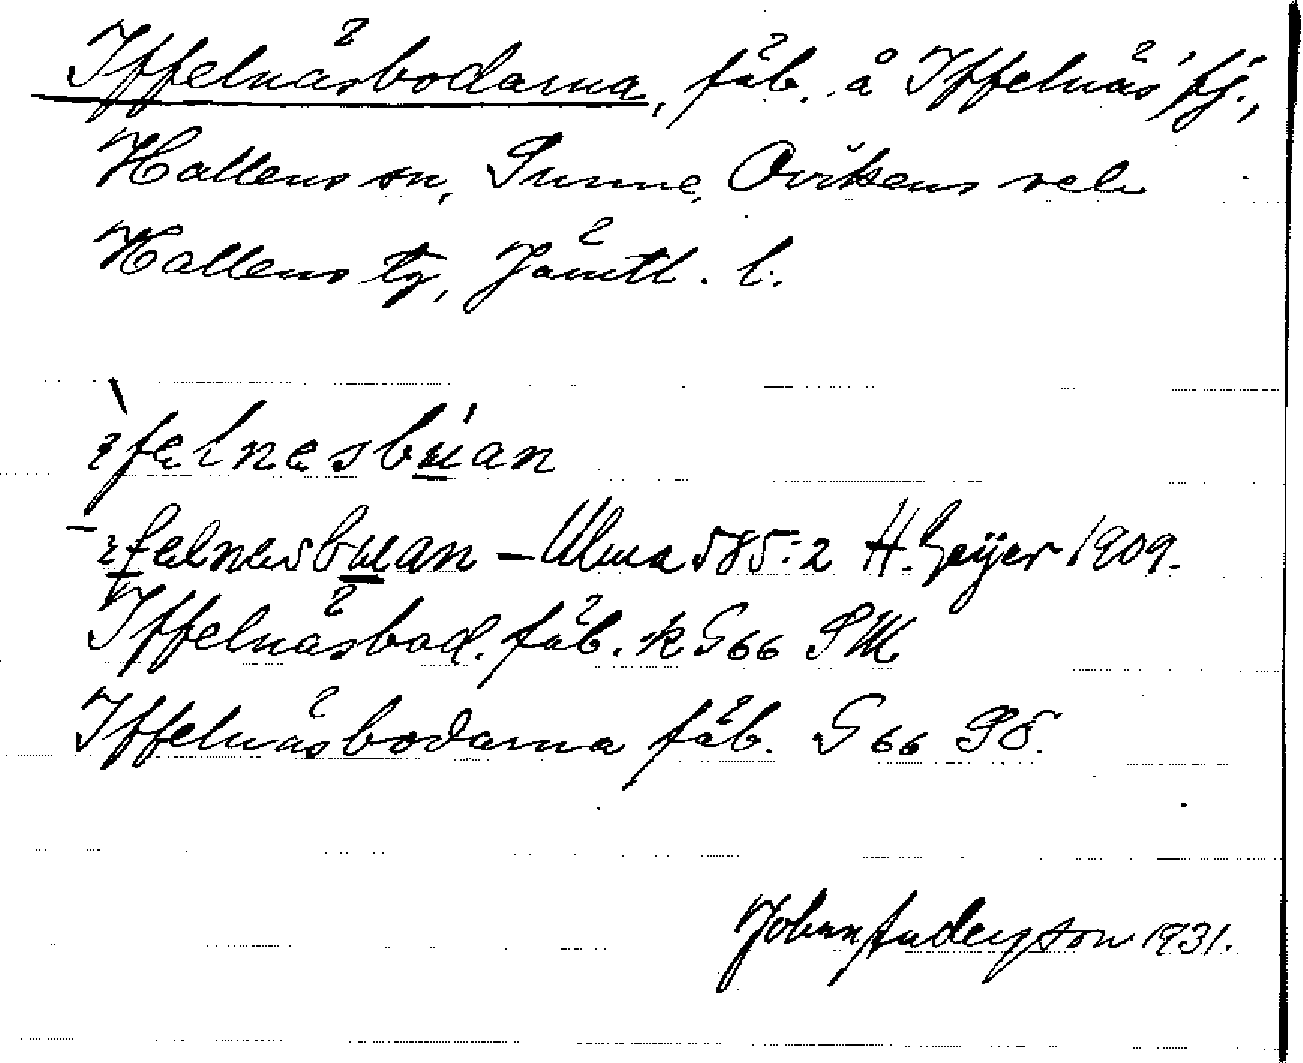 Iffelnäsbodarna, fäb. å Iffelnäs'fj.,
Hallens sn, Sunne, Ovikens och
Hallens tg, Jämtl. l.
ìfelnesbúan
ifelnesbuan – Ulma 585:2 H. Geijer 1909.
Iffelnäsbod. fäb. k G66 SM
Iffelnäsbodarna fäb. G66 SO.
Johan Anderson 1931.